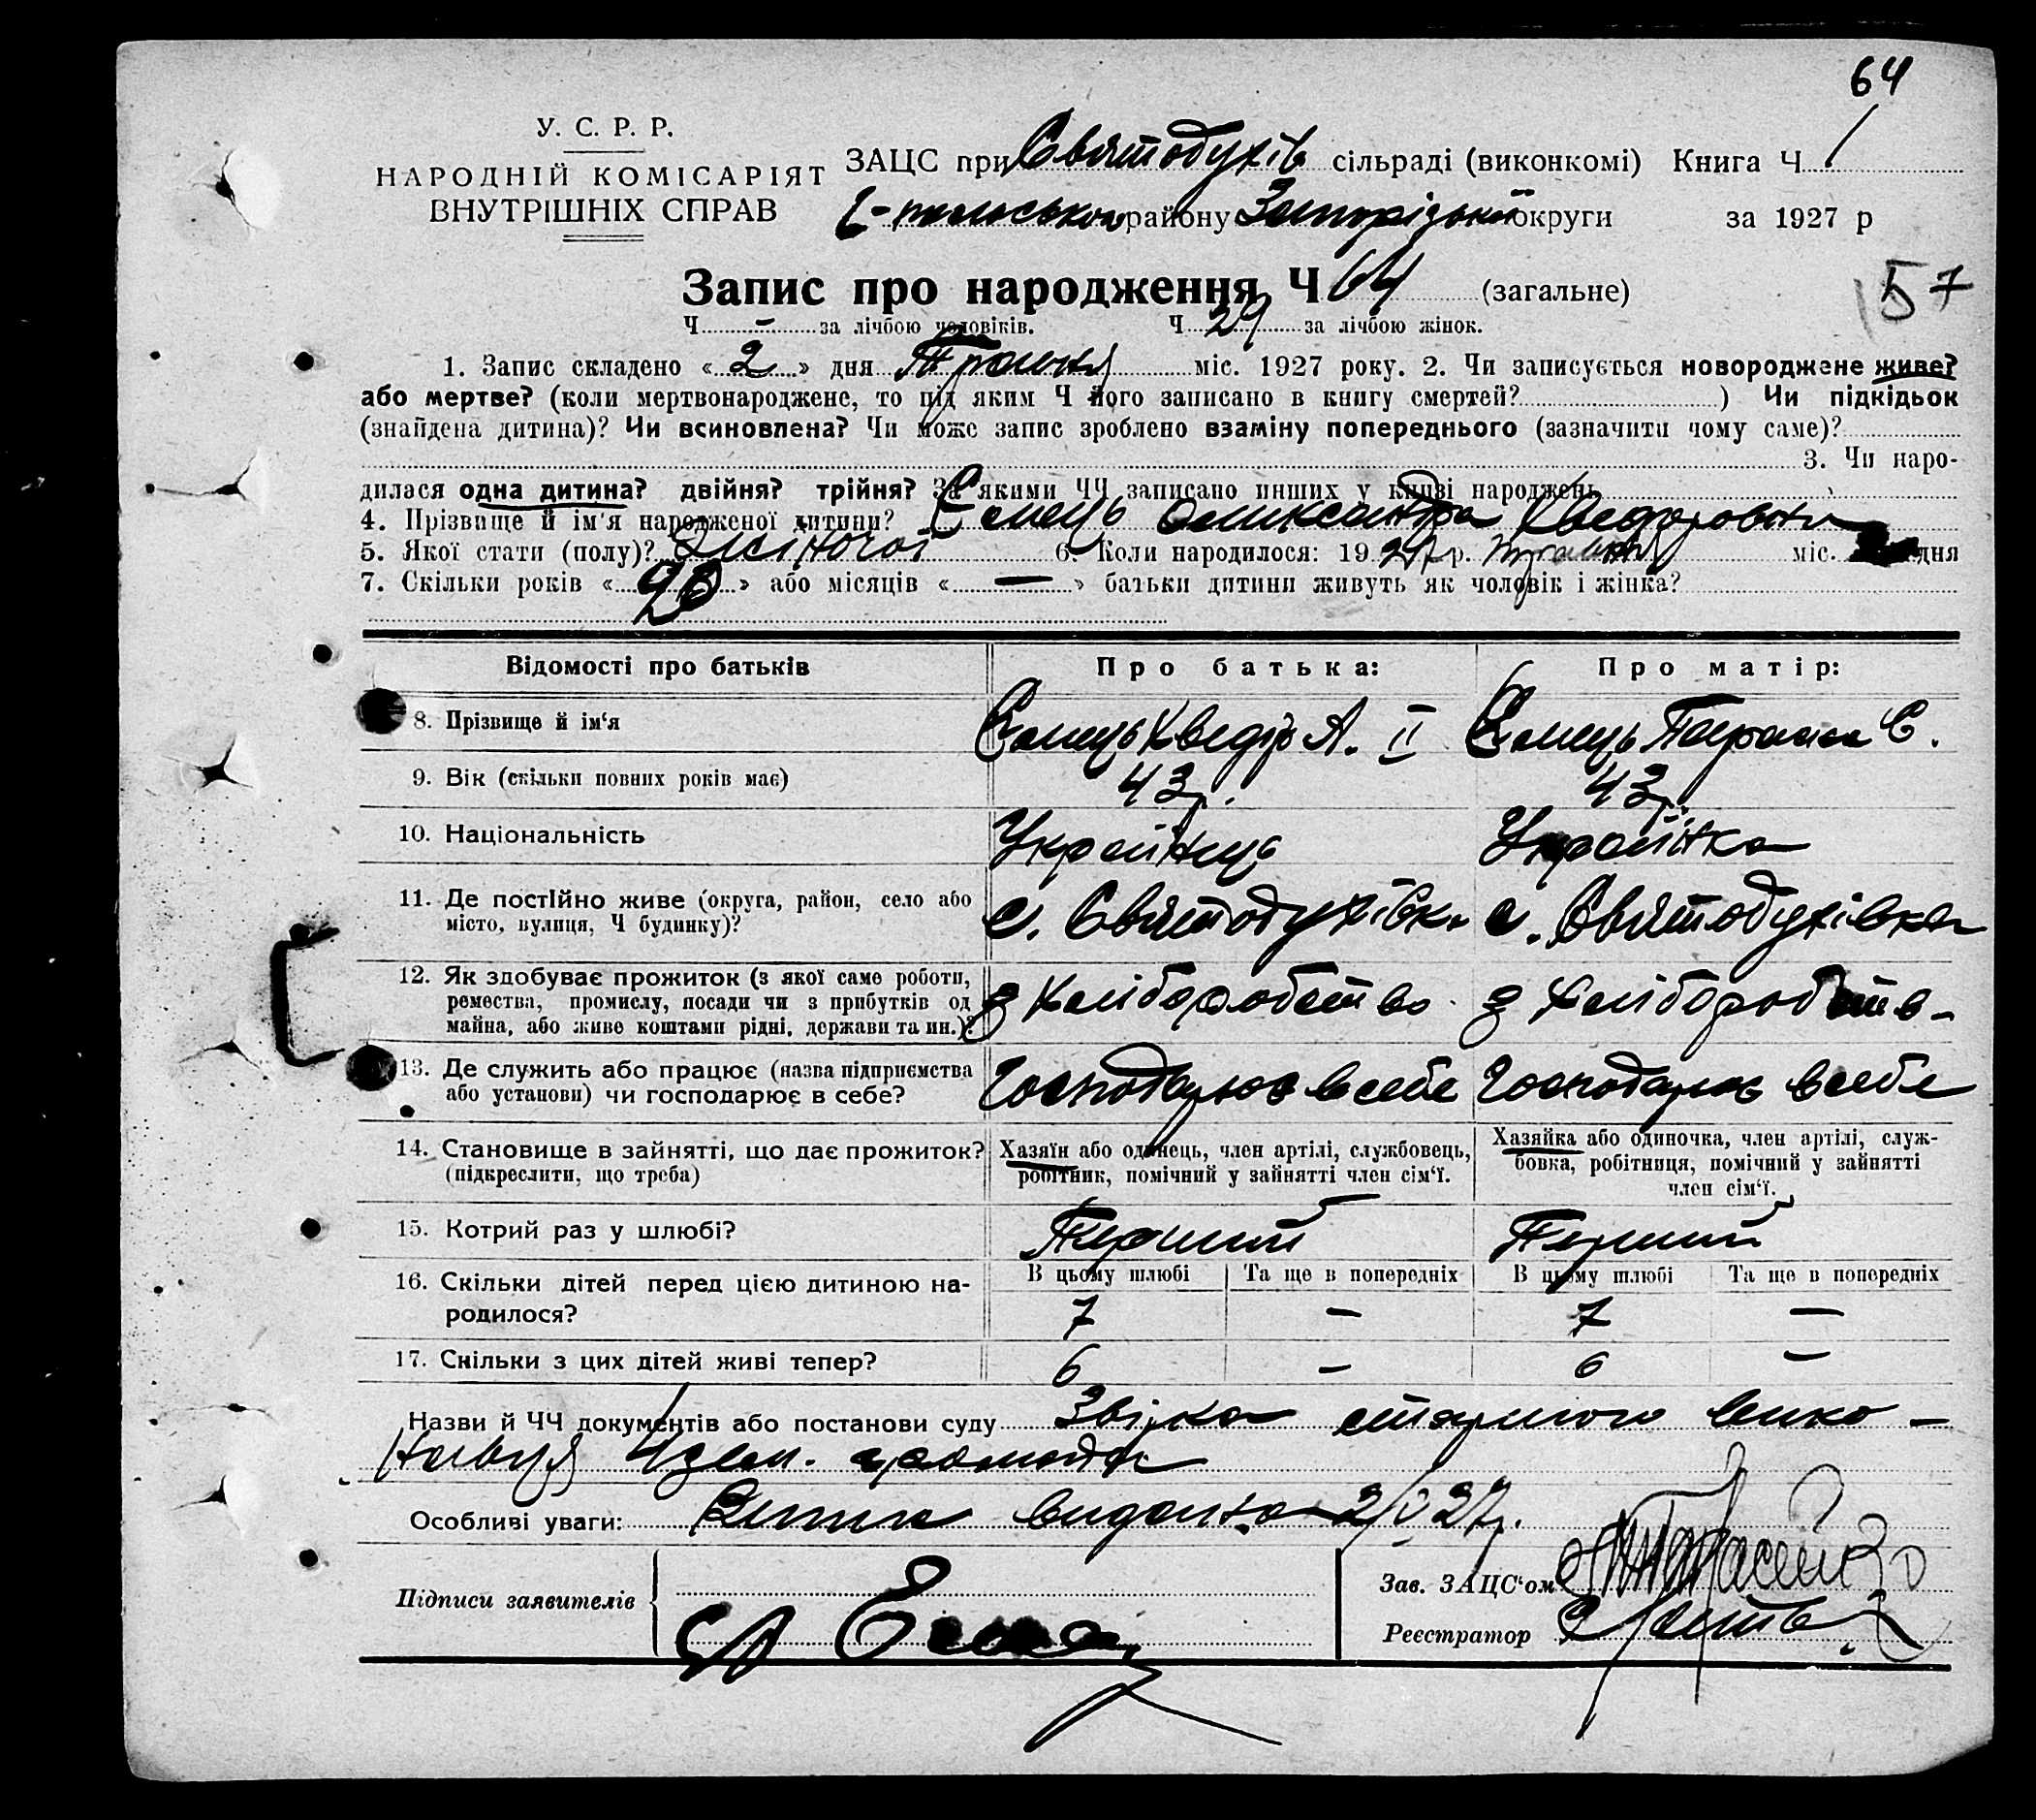 64
У. С. Р. Р.
НАРОДНІЙ КОМІСАРІЯТ
ВНУТРІШНІХ СПРАВ
ЗАЦС при Святодухів сільраді (виконкомі) Книга Ч 1
району Запорізької округи за 1927 р
Запис про народження Ч 64 (загальне)
157
Ч. – за лічбою чоловіків. Ч 29 за лічбою жінок.
1. Запис складено « 2 » дня Травня міс. 1927 року. 2. Чи записується новороджене живе?
або мертве? (коли мертвонароджене, то під яким Ч його записано в книгу смертей? ) Чи підкідьок
(знайдена дитина)? Чи всиновлена? Чи може запис зроблено взаміну попереднього (зазначити чому саме)?
3. Чи наро-
дилася одна дитина? двійня? трійня? За якими ЧЧ записано инших у книзі народжень
4. Прізвище й ім'я народженої дитини? Ємець Олександра Хведоровна
5. Якої стати (полу)? Жіночої 6. Коли народилося: 1927 р. Травня міс. дня
7. Скільки років « » або місяців « — » батьки дитини живуть як чоловік і жінка?
Відомості про батьків Про батька: Про матір:
8. Прізвище й ім'я Ємець Хведір А. II Ємець Параска Є.
9. Вік (скільки повних років має) 43 р. 43 р.
10. Національність Українець Українка
11. Де постійно живе (округа, район, село або
місто, вулиця, Ч будинку)? с. Святодухівка с. Святодухівка
12. Як здобуває прожиток (з якої саме роботи,
ремества, промислу, посади чи з прибутків од
майна, або живе коштами рідні, держави та ин.)? з Хліборобство з Хліборобств-
13. Де служить або працює (назва підприємства
або установи) чи господарює в себе? Господарює в себе Господарює в себе
14. Становище в зайнятті, що дає прожиток?
(підкреслити, що треба)
Хазяїн або одинець, член артілі, службовець,
робітник, помічний у зайнятті член сім'ї.
Хазяйка або одиночка, член артілі, служ-
бовка, робітниця, помічний у зайнятті
член сім'ї.
15. Котрий раз у шлюбі? Перший Перший
В цьому шлюбі Та ще в попередніх В цьому шлюбі Та ще в попередніх
16. Скільки дітей перед цією дитиною на-
родилося? 7 — 7 —
17. Скільки з цих дітей живі тепер? 6 — 6 —
Назви й ЧЧ документів або постанови суду Звірка старшого вико-
навця зем. громади
Особливі уваги: видана
Підписи заявителів
Зав. ЗАЦС'ом
Реєстратор